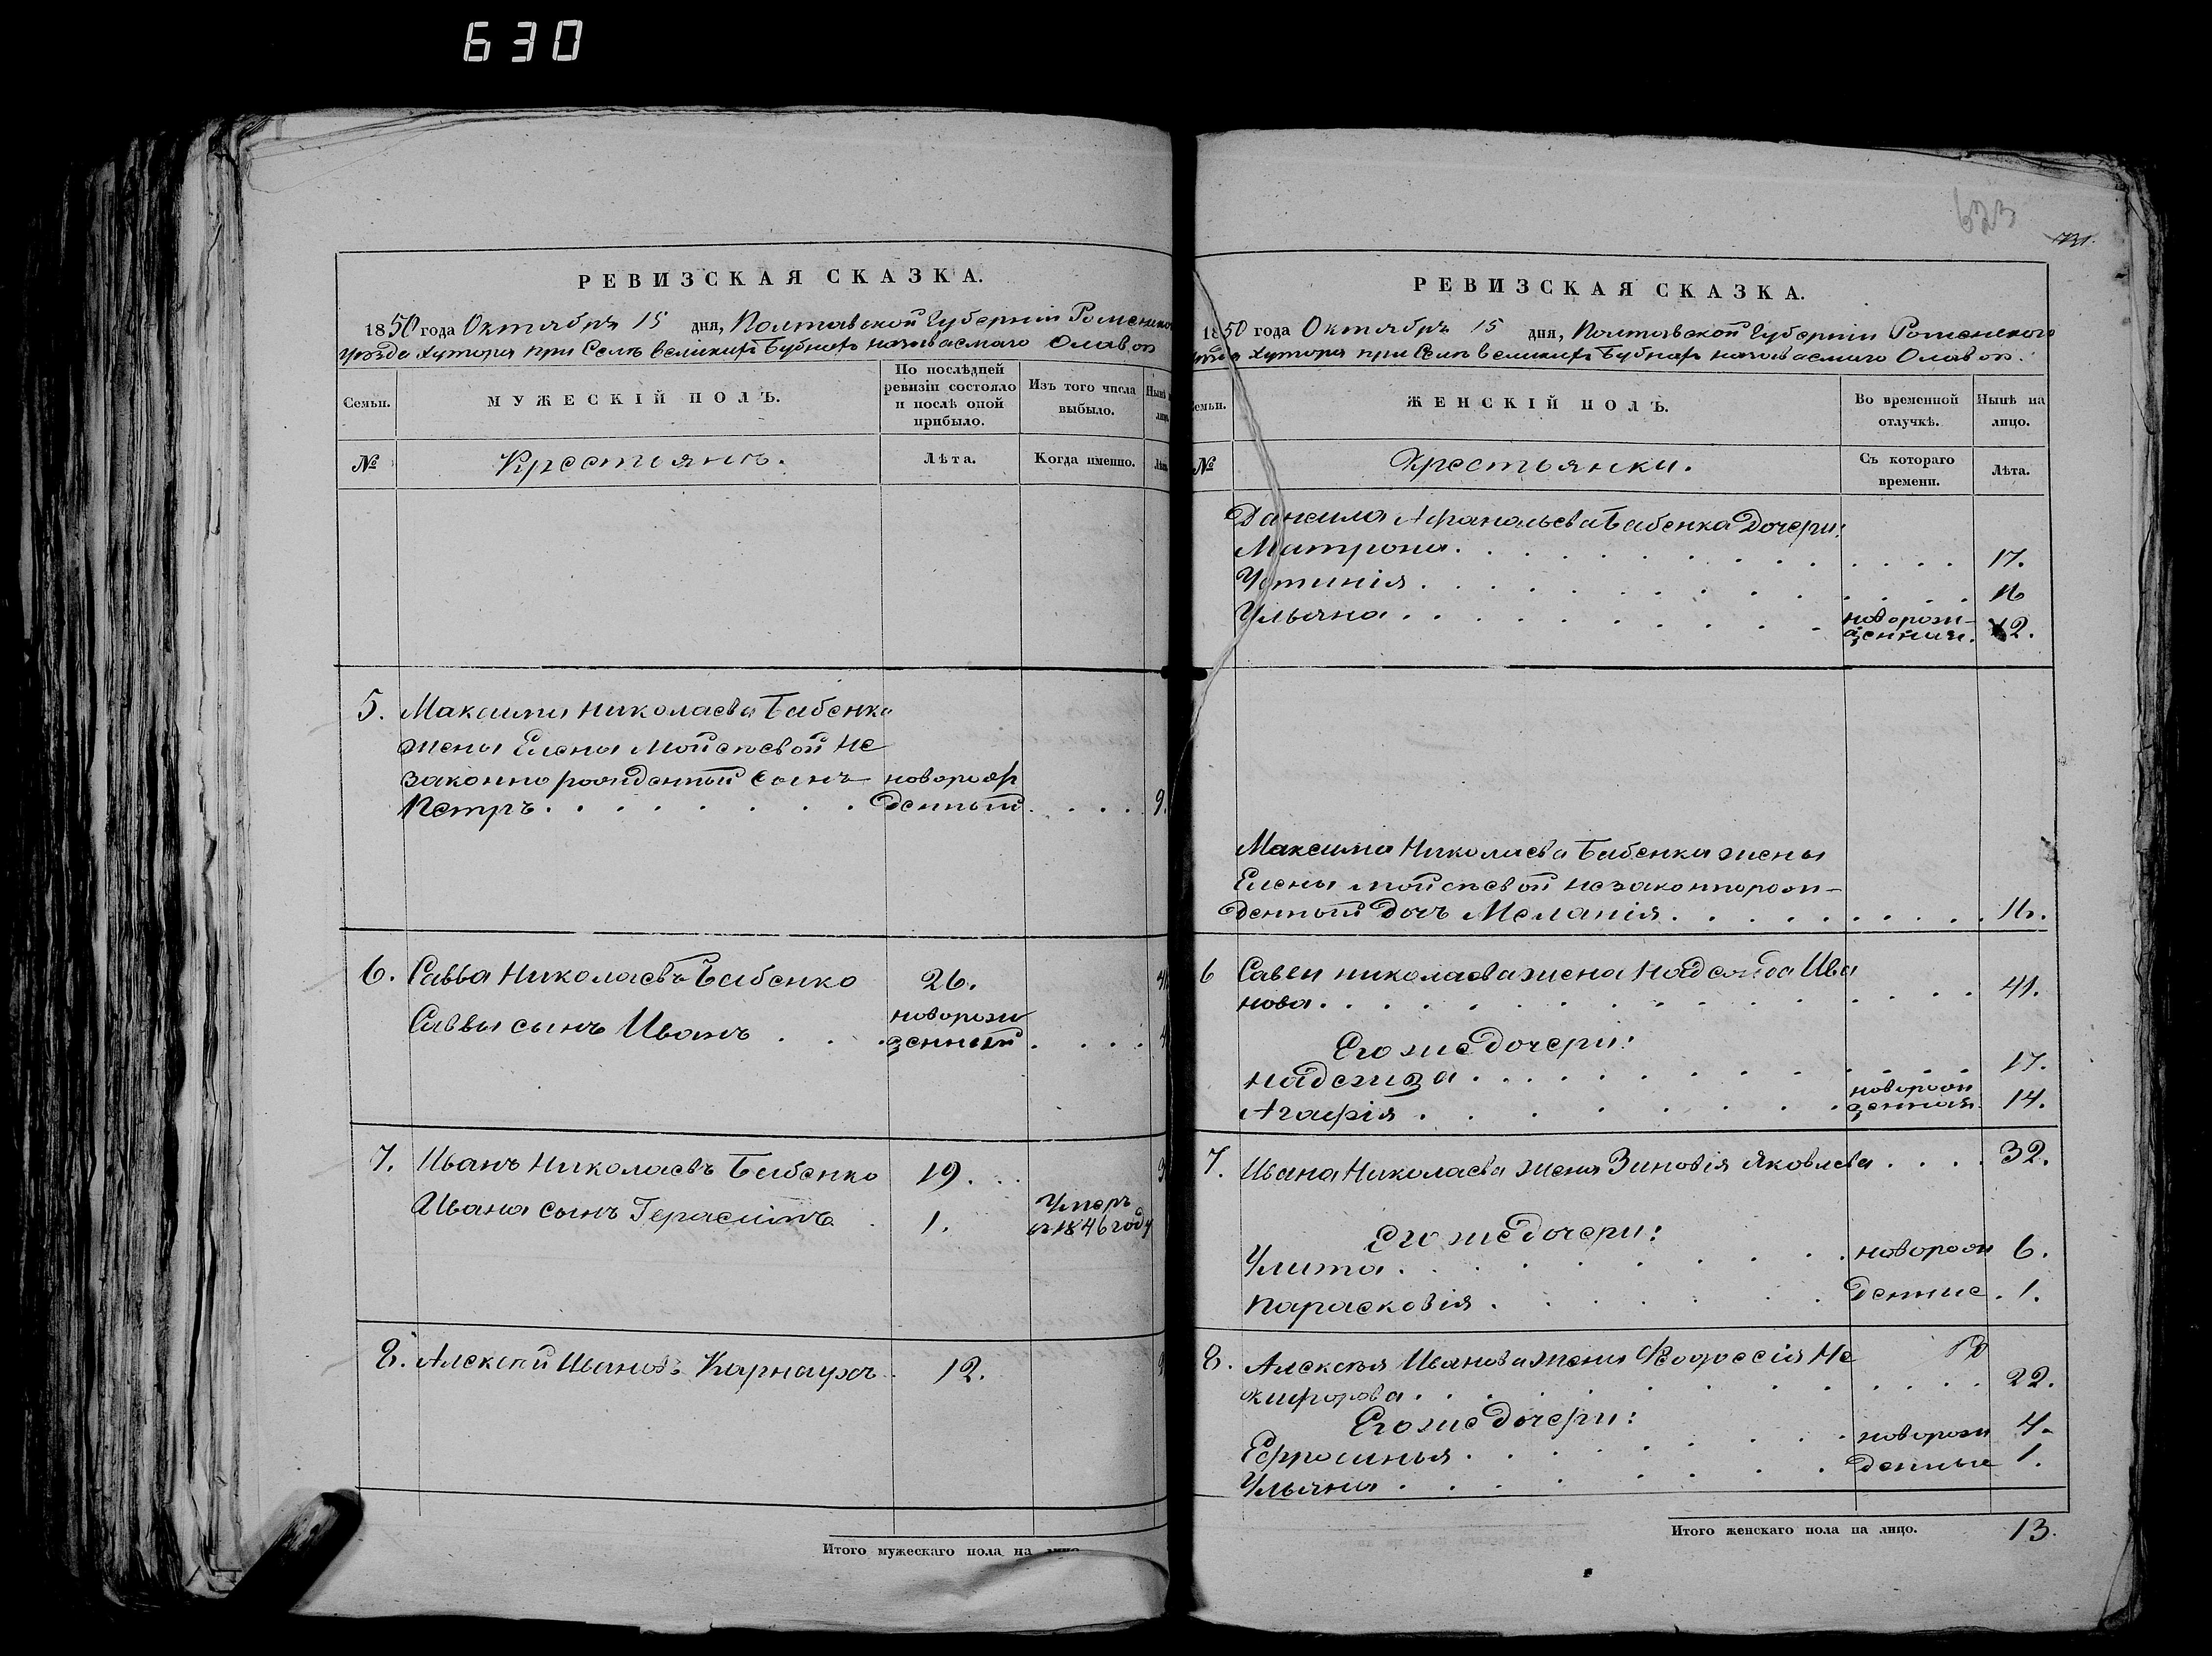 630
РЕВИЗСКАЯ СКАЗКА.
1850 года Октября 15 дня, Полтавской Губерніи Роменско
уѣзда Хутора при Селѣ Великихъ Бубнахъ называемаго
Семьи.
МУЖЕСКІЙ ПОЛЪ.
По послѣдней ревизіи состояло и послѣ оной прибыло.
Изъ того числа выбыло.
№
Крестьянъ.
Лѣта.
Когда именно.
5. Максима Николаева Бабенка
жены Елены Мойсѣевой не
законно рожденный сынъ новорож
Петръ . . . . . . . . денный . . . . 9.
6. Савва Николаевъ Бабенко 26.
Саввы сынъ Иванъ . . . новорож
денный . . . .
7. Иванъ Николаевъ Бабенко 19. . .
Ивана сынъ Герасимъ . 1. Умеръ
въ 1846 году
8. Алексѣй Ивановъ Карнаухъ . 12.
Итого мужескаго пола на
623
РЕВИЗСКАЯ СКАЗКА.
1850 года Октября 15 дня, Полтавской Губерніи Роменского
Хутора при Селѣ Великихъ Бубнахъ называемаго
ЖЕНСКІЙ ПОЛЪ.
Во временной отлучкѣ.
Нынѣ на лицо.
№
Крестьянки.
Съ котораго времени.
Лѣта.
Даниила Афанасьева Бабенка Дочери:
Матрона . . . . . . . . . . . . 17.
Устинія . . . . . . . . . . . . 16
Ульяна . . . . . . . . . новорож-
денная. 12.
Максима Николаева Бабенка жены
Елены Мойсѣевой незаконнорож-
денной Дочь Меланія . . . . . . . . . 16.
6 Саввы Николаева жена Надежда Ива
нова . . . . . . . . . . . . 41.
Его же Дочери:
Надежда . . . . . . . . . . . . 17.
Агафія . . . . . . . . новорож
денная. 14.
7. Ивана Николаева жена Зиновія Яковлева . . . . 32.
Его же Дочери:
Улита . . . . . . . . новорож 6.
Парасковія . . . . . . . денные . 1.
8. Алексѣя Иванова жена Феодосія Не
кифорова . . . . . . . . . . . . 22.
Его же Дочери:
Ефросинья . . . . . . . . новорож 4.
Ульяна . . . . . . . . денные 1.
Итого женскаго пола на лицо. 13.